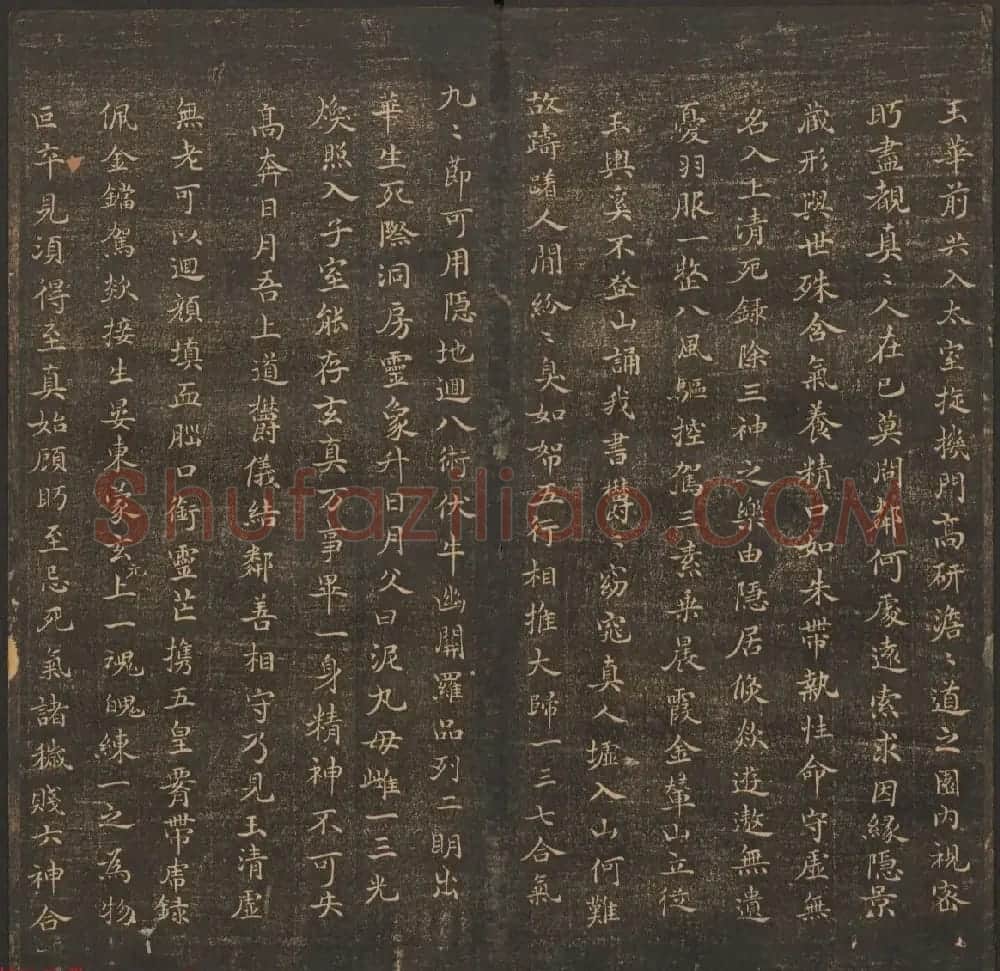 玉華前共入太室挻擙門高研澹〻道之園內視密
盻盡覩真〻人在已莫問鄰何處遠索求因緣隱景
藏形與世殊含氣養精口如朱帶執性命守虛無
名入上清死録除三神之樂由隱居倏欻遊遨無遺
憂羽服一整八風驅控駕三素乗晨霞金輦山立從
玉輿奚不登山誦我書欝〻窈窕真人墟入山何難
故躊躇人間紛〻臭如帤五行相推大歸一三七合氣
九〻節可用隱地迴八術伏牛幽開羅品列二明出
華生死際洞房靈象升日月父曰泥丸母雌一三光
煥照入子室能存玄真万事畢一身精神不可失
高奔日月吾上道欝儀結鄰善相守乃見玉清虛
無老可以迴顏填血腦口銜靈芒携五皇腎帶虎録
佩金鐺駕欻接生晏東蒙玄元上一魂魄練一之為物
叵卒見須得至真始顧盻至忌死氣諸穢賤六神合
Shufaziliao.COM